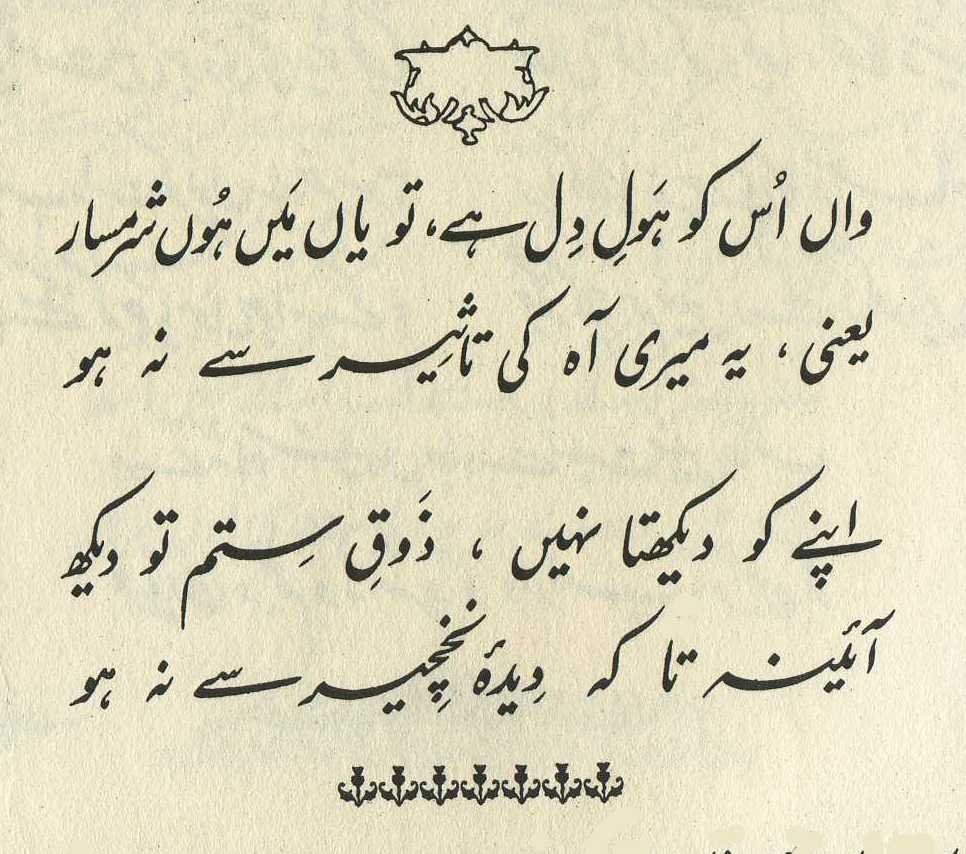 واں اُس کو ہَولِ دِل ہے، تو یاں مَیں ہُوں شرمسار
یعنی، یہ میری آہ کی تاثِیر سے نہ ہو
اپنے کو دیکھتا نہیں، ذَوقِ سِتم تو دیکھ
آئینہ تا کہ دِیدۂ نخچِیر سے نہ ہو